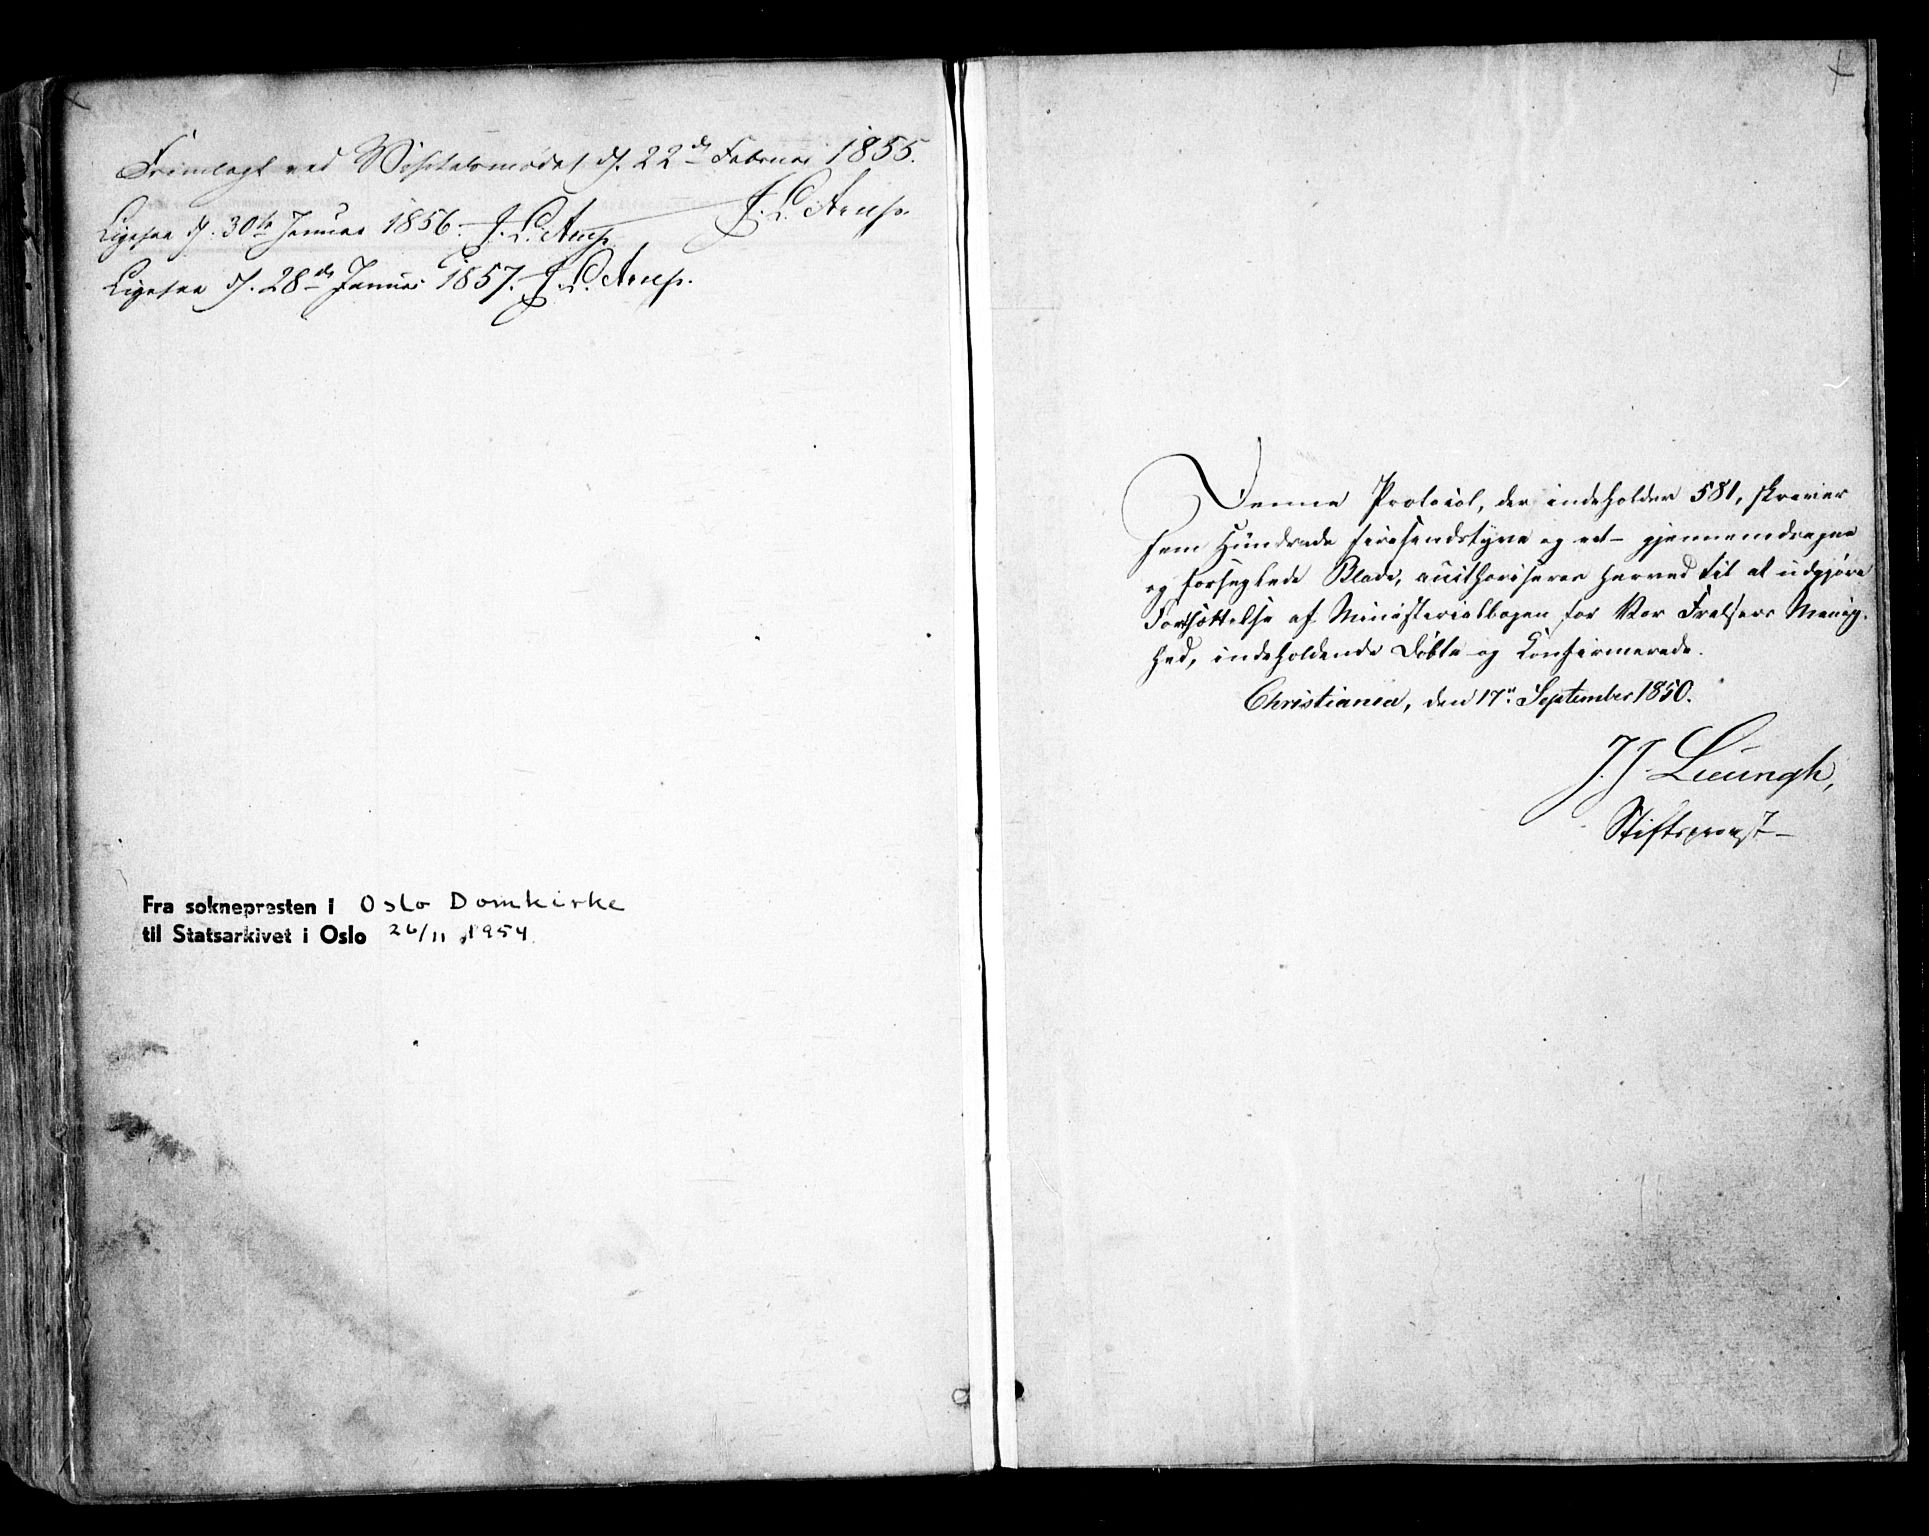 Fremlagt ved Visitatsmødet d. 22de Februar 1855.
J. L. Arup.
Ligesaa d. 30te Januar 1856. J. L. Arup.
Ligesaa d. 28de Januar 1857. J. L. Arup.
Fra soknepresten i Oslo Domkirke
til Statsarkivet i Oslo 26/11 1954.
Denne Protocol, der indeholder 581, skriver
fem Hundrede fiirsindstyve og eet - gjennemdragne
og forseglede Blade, authoriseres herved til at udgjøre
Fortsættelse af Ministerialbogen for Vor Frelsers Menig-
hed, indeholdende Døbte og Konfirmerede.
Christiania, den 17n September 1850.
J. J. Lieungh,
Stiftsprovst